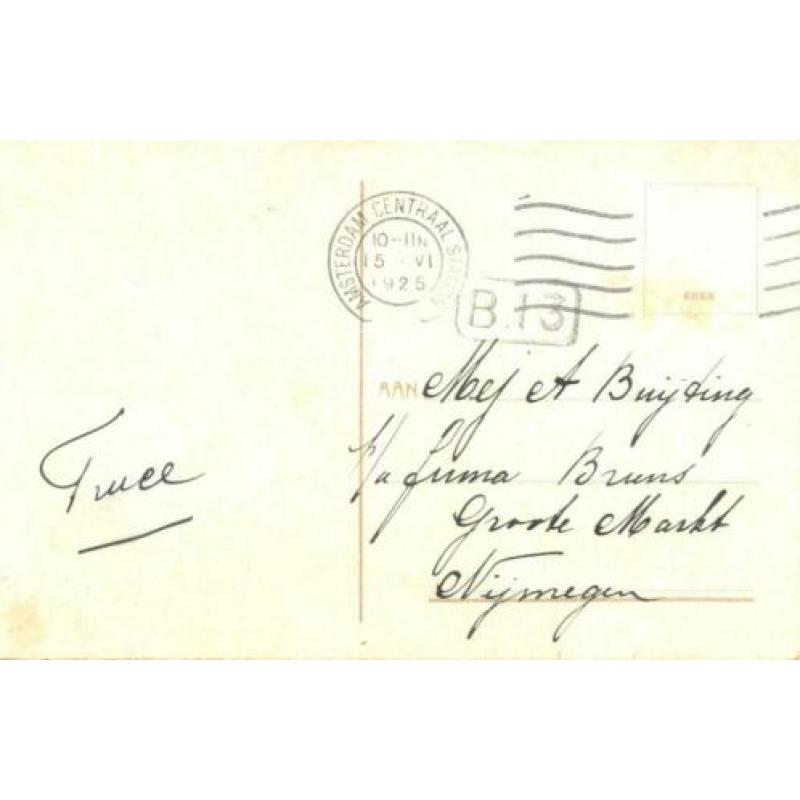 AMSTERDAM CENTRAAL STATION
10-11N
15 VI
1925
B.13
AAN Mej A Buijting
p/a firma Bruns
Groote Markt
Nijmegen
Truce